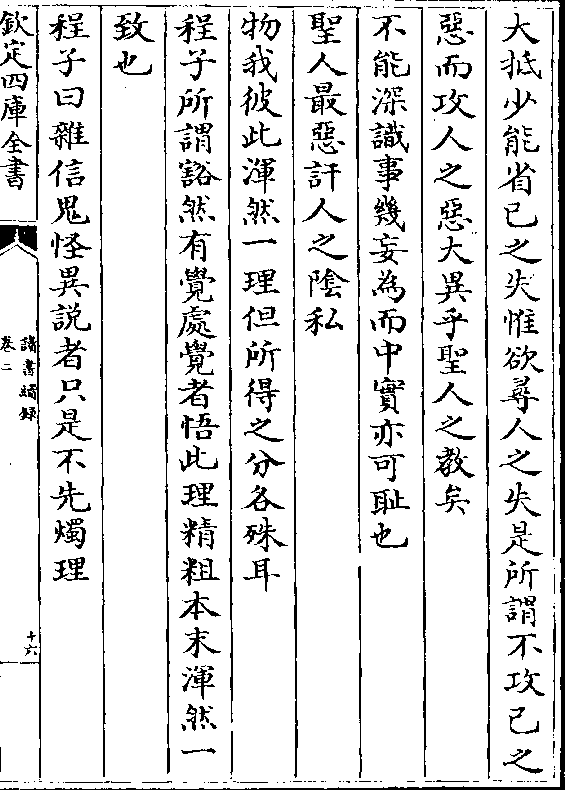 大抵少能省已之失惟欲尋人之失是所謂不攻已之
惡而攻人之惡大異乎聖人之教矣
不能深識事幾妄為而中實亦可恥也
聖人最惡訐人之陰私
物我彼此渾然一理但所得之分各殊耳
程子所謂豁然有覺處覺者悟此理精粗本末渾然一
致也
程子曰雜信鬼怪異説者只是不先燭理
欽定四庫全書
讀書續録
卷二
十六